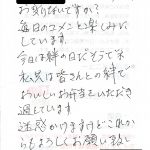 お変りないですか?
毎日のコメント楽しみに
しています。
今日は絆の日だそうで
私共は皆さんとの絆で
おいしいお弁当をいただき
過えています
迷惑かけますけどこれか
らもよろしくお願い致し